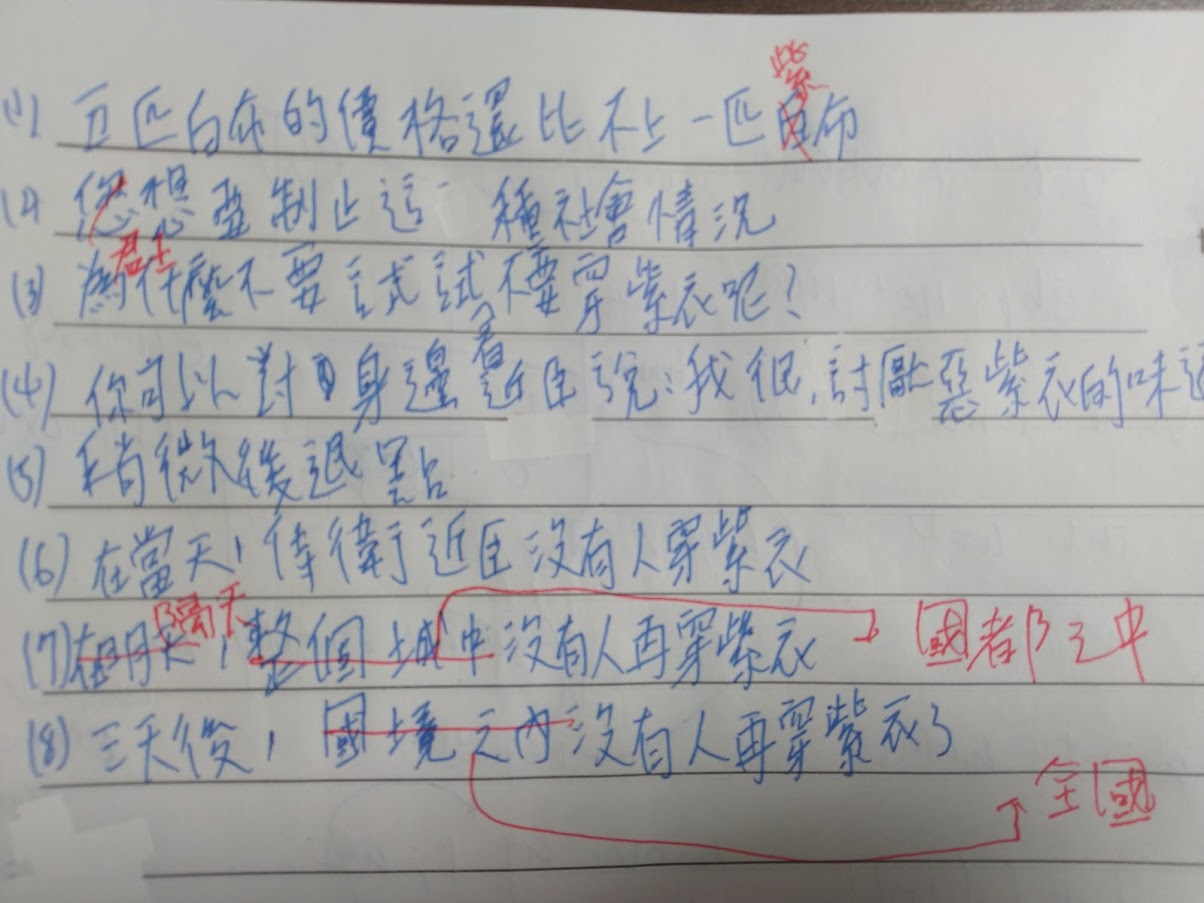 紫
(1) 五匹白布的價格還比不上一匹布
(2) 您想要制止這一種社會情況
君王
(3) 為什麼不要試試不要穿紫衣呢？
看
(4) 你可以對身邊近臣說：我很討厭惡紫衣的味道
(5) 稍微後退點
(6) 在當天，侍衛近臣沒有人穿紫衣
隔天
(7) 在明天，整個城中沒有人再穿紫衣 國都之中
(8) 三天後，國境之內沒有人再穿紫衣了
全國